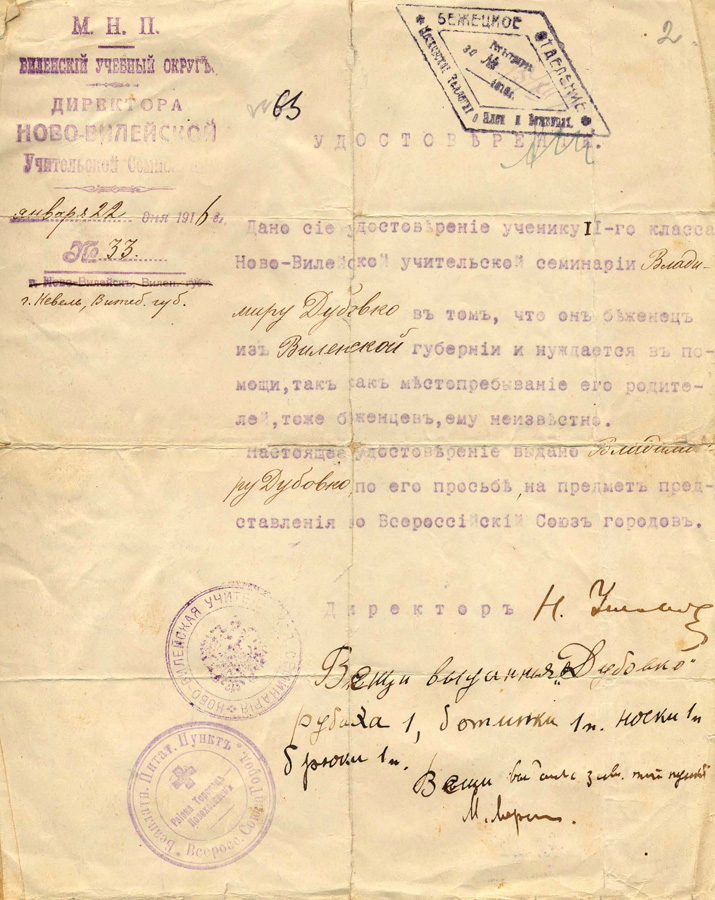 М. Н. П.
ВИЛЕНСКІЙ УЧЕБНЫЙ ОКРУГЪ.
ДИРЕКТОРА
НОВО-ВИЛЕЙСКОЙ
Учительской
января 22 дня 1916 г.
№ 33.
г. Ново-Вилейскъ, Вилен. губ.
г. Невель, Витеб. губ.
63
БЕЖЕЦКОЕ ОТДЕЛЕНИЕ
30
2
УДОСТОВѢРЕНІЕ.
Дано сіе удостовѣреніе ученику II-го класса
Ново-Вилейской учительской семинаріи Влади-
миру Дубовко въ томъ, что онъ бѣженецъ
изъ Виленской губерніи и нуждается въ по-
мощи, такъ какъ мѣстопребываніе его родите-
лей, тоже бѣженцевъ, ему неизвѣстно.
Настоящее удостовѣреніе выдано Владими-
ру Дубовко, по его просьбѣ, на предметъ пред-
ставленія во Всероссійскій Союзъ городовъ.
Директоръ Н.
НОВО-ВИЛЕЙСКАЯ УЧИТЕЛЬСКАЯ СЕМИНАРІЯ
Вещи выданная "Дубовко"
рубаха 1, ботинки 1п. носки 1п
брюки 1п.
Вещи
М.
Питат. Пунктъ
Всерос. Союз. Город.